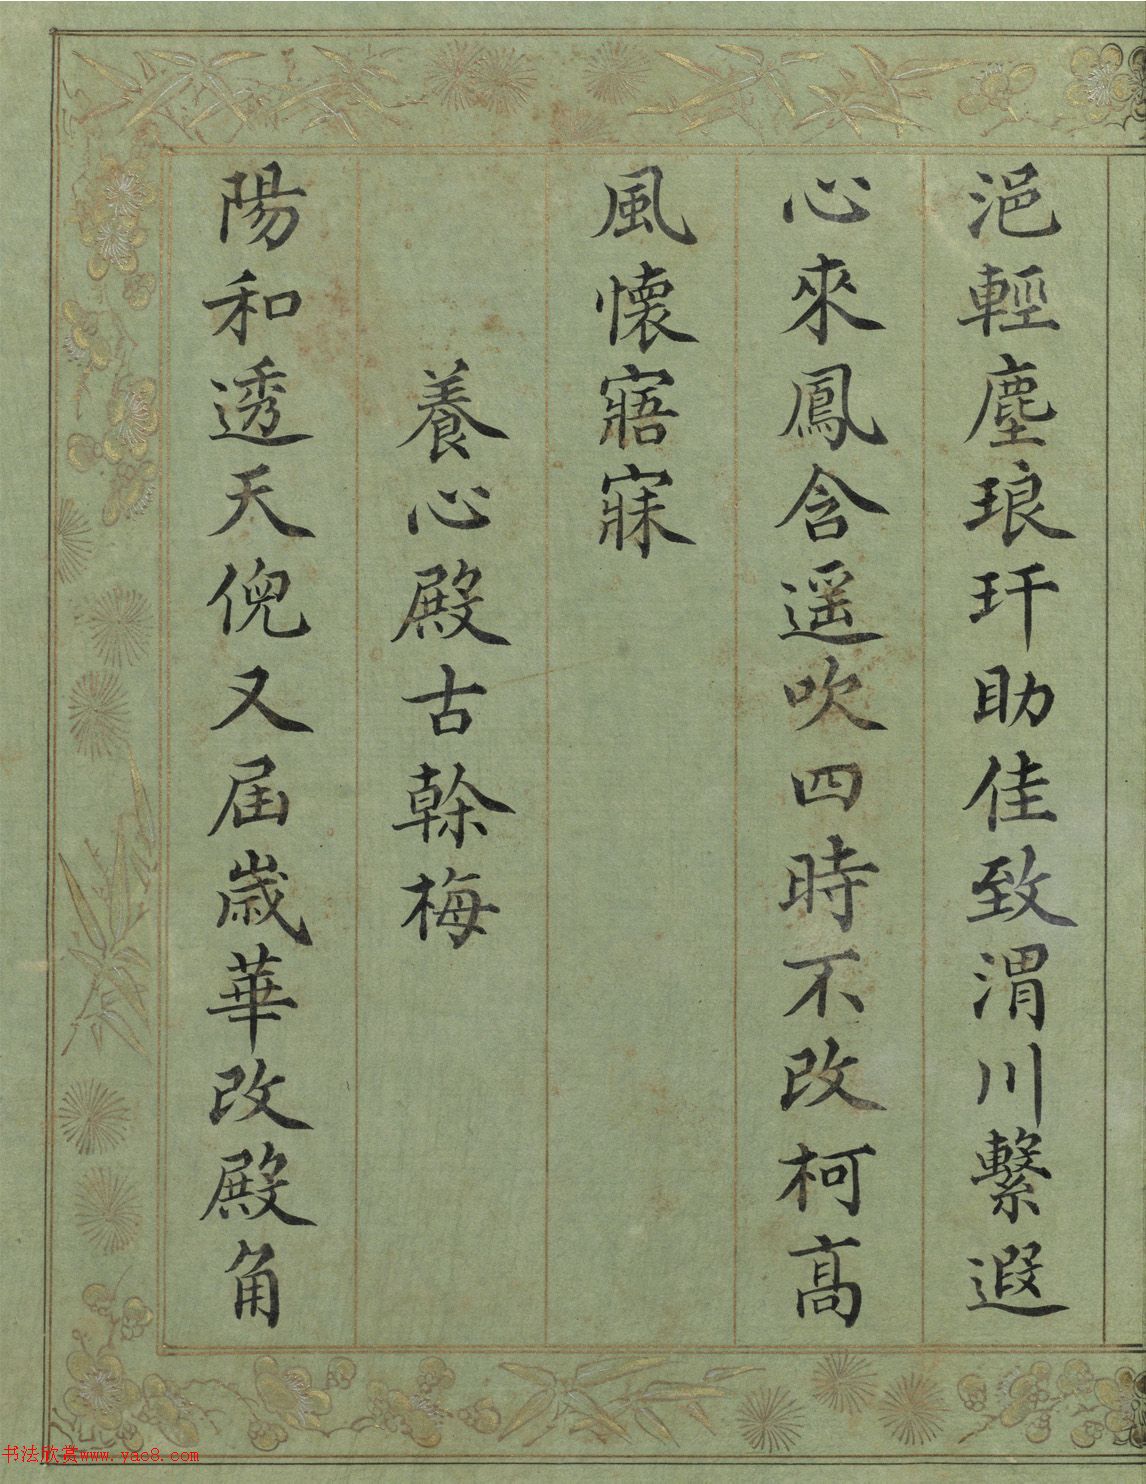 浥輕塵琅玕助佳致渭川繫遐
心來鳳含遥吹四時不改柯高
風懷寤寐
養心殿古榦梅
陽和透天倪又屆歲華改殿角
书法欣赏www.yac8.com